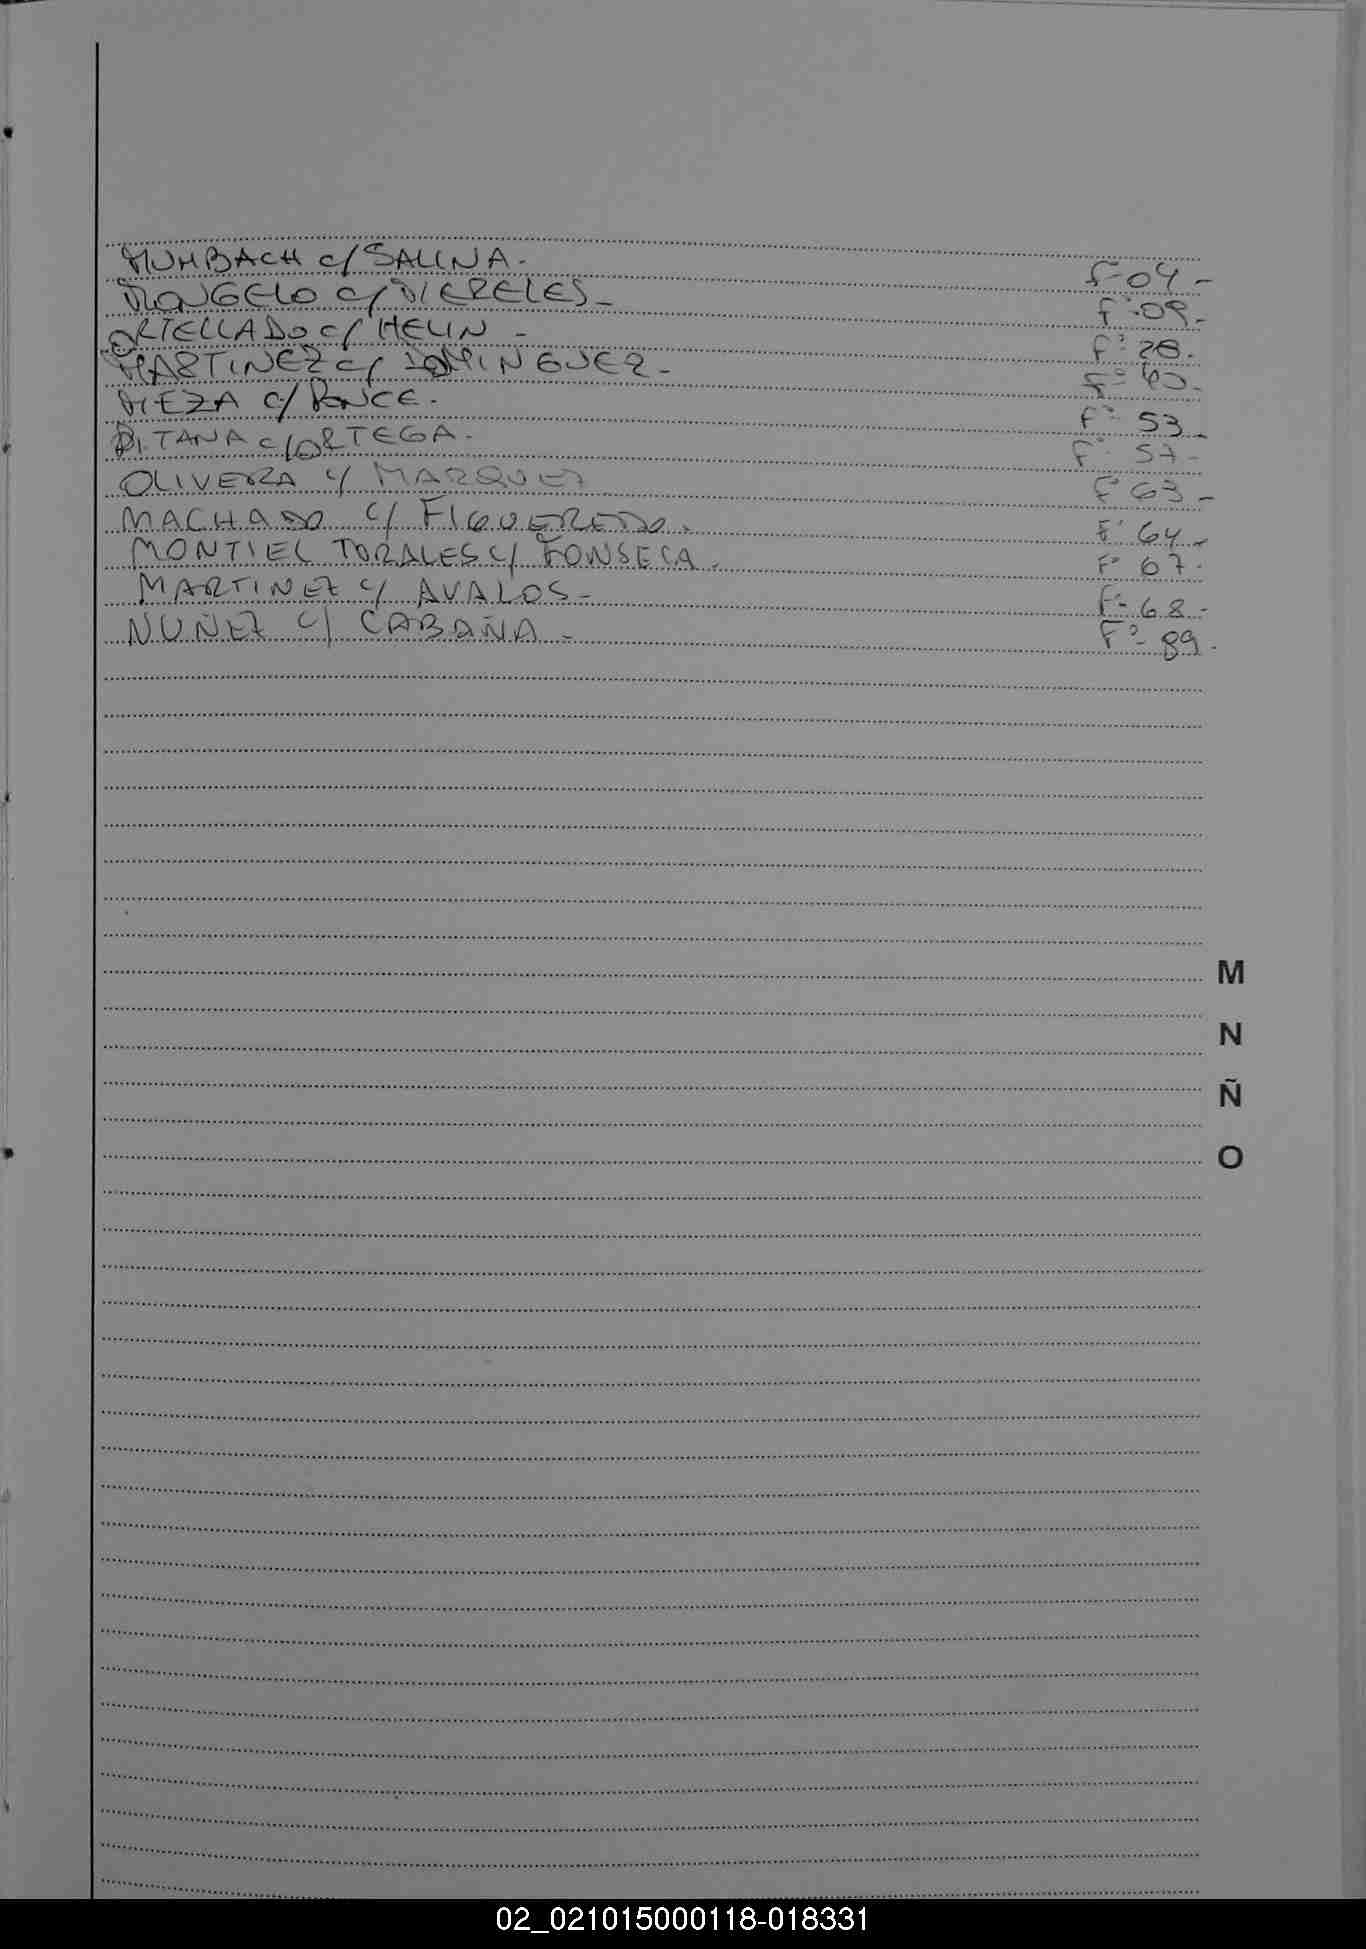 MUMBACH c/ SALINA.- F° 04 -
MONGELO c/ MIERELES - F° 09 -
ORTELLADO c/ HELIN - F° 28.
MARTINEZ c/ DOMINGUEZ - F°
MEZA c/ PONCE. F° 53 -
c/ ORTEGA. F° 57 -
OLIVERA c/ MARQUEZ F° 63 -
MACHADO c/ FIGUEREDO. F° 64 -
MONTIEL TORALES c/ FONSECA. F° 67.
MARTINEZ c/ AVALOS - F° 68 -
NUÑEZ c/ CABAÑA - F° 89.
M
N
Ñ
O
02_021015000118-018331